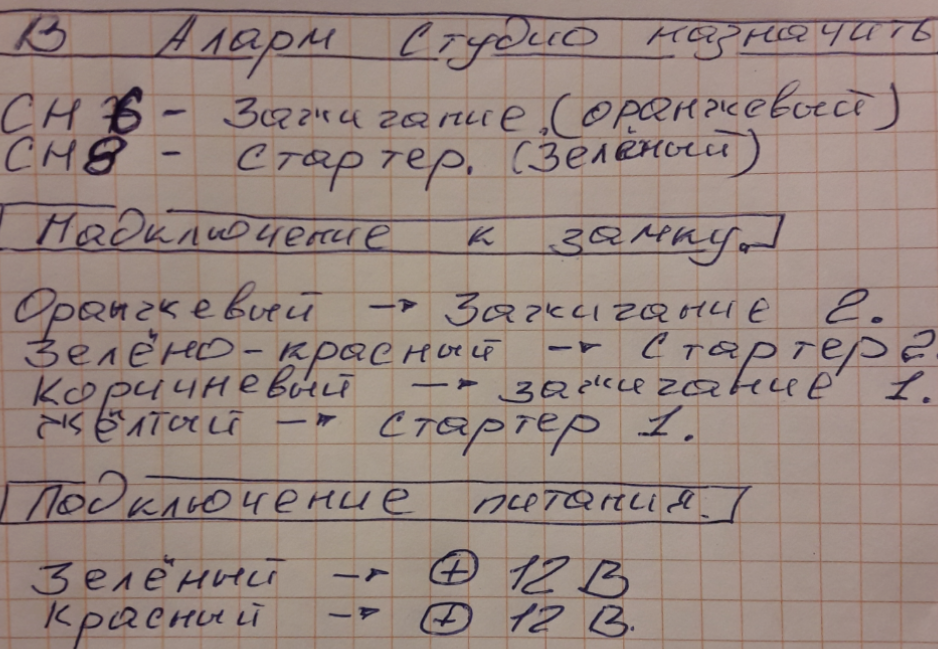 В Аларм Студио назначить
СН 6 - Зажигание. (оранжевый)
СН 8 - Стартер. (Зелёный)
Подключение к замку.
Оранжевый → Зажигание 2.
Зелёно-красный → Стартер 2.
Коричневый → зажигание 1.
Жёлтый → Стартер 1.
Подключение питания.
Зелёный → + 12 В
Красный → + 12 В.